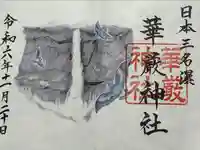 日本三名瀑
華厳神社
華嚴神社
令和六年十一月二十日